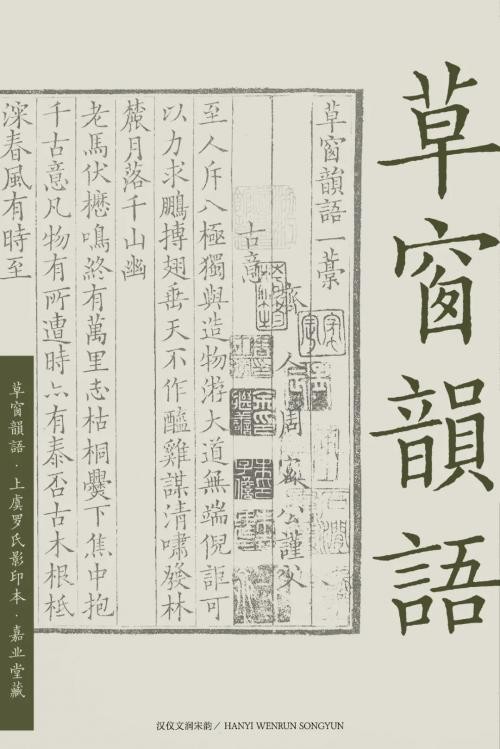 草窗韻語
草窗韻語一藳
齊人周密公謹父
古意
至人斥八極獨與造物游大道無端倪詎可
以力求鵬摶翅垂天不作醯雞謀清嘯發林
麓月落千山幽
老馬伏櫪鳴然有萬里志枯桐爨下焦中抱
千古意凡物有所遭時亦有泰否古木根柢
深春風有時至
草窗韻語·上虞罗氏影印本·嘉业堂藏
汉仪文润宋韵/ HANYI WENRUN SONGYUN